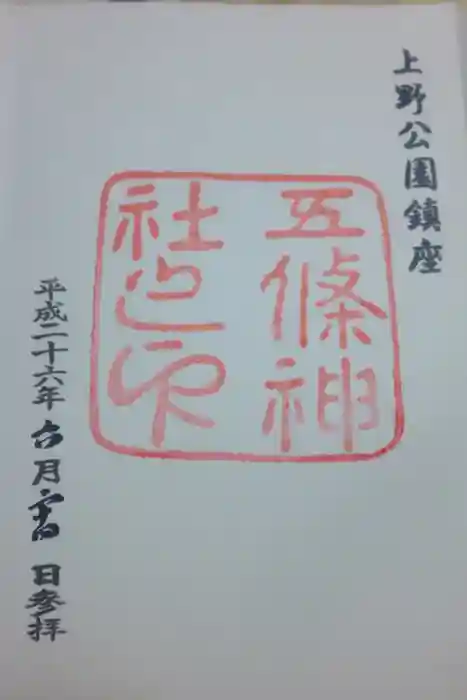 上野公園鎮座
五條神
社之印
平成二十六年六月 日参拝